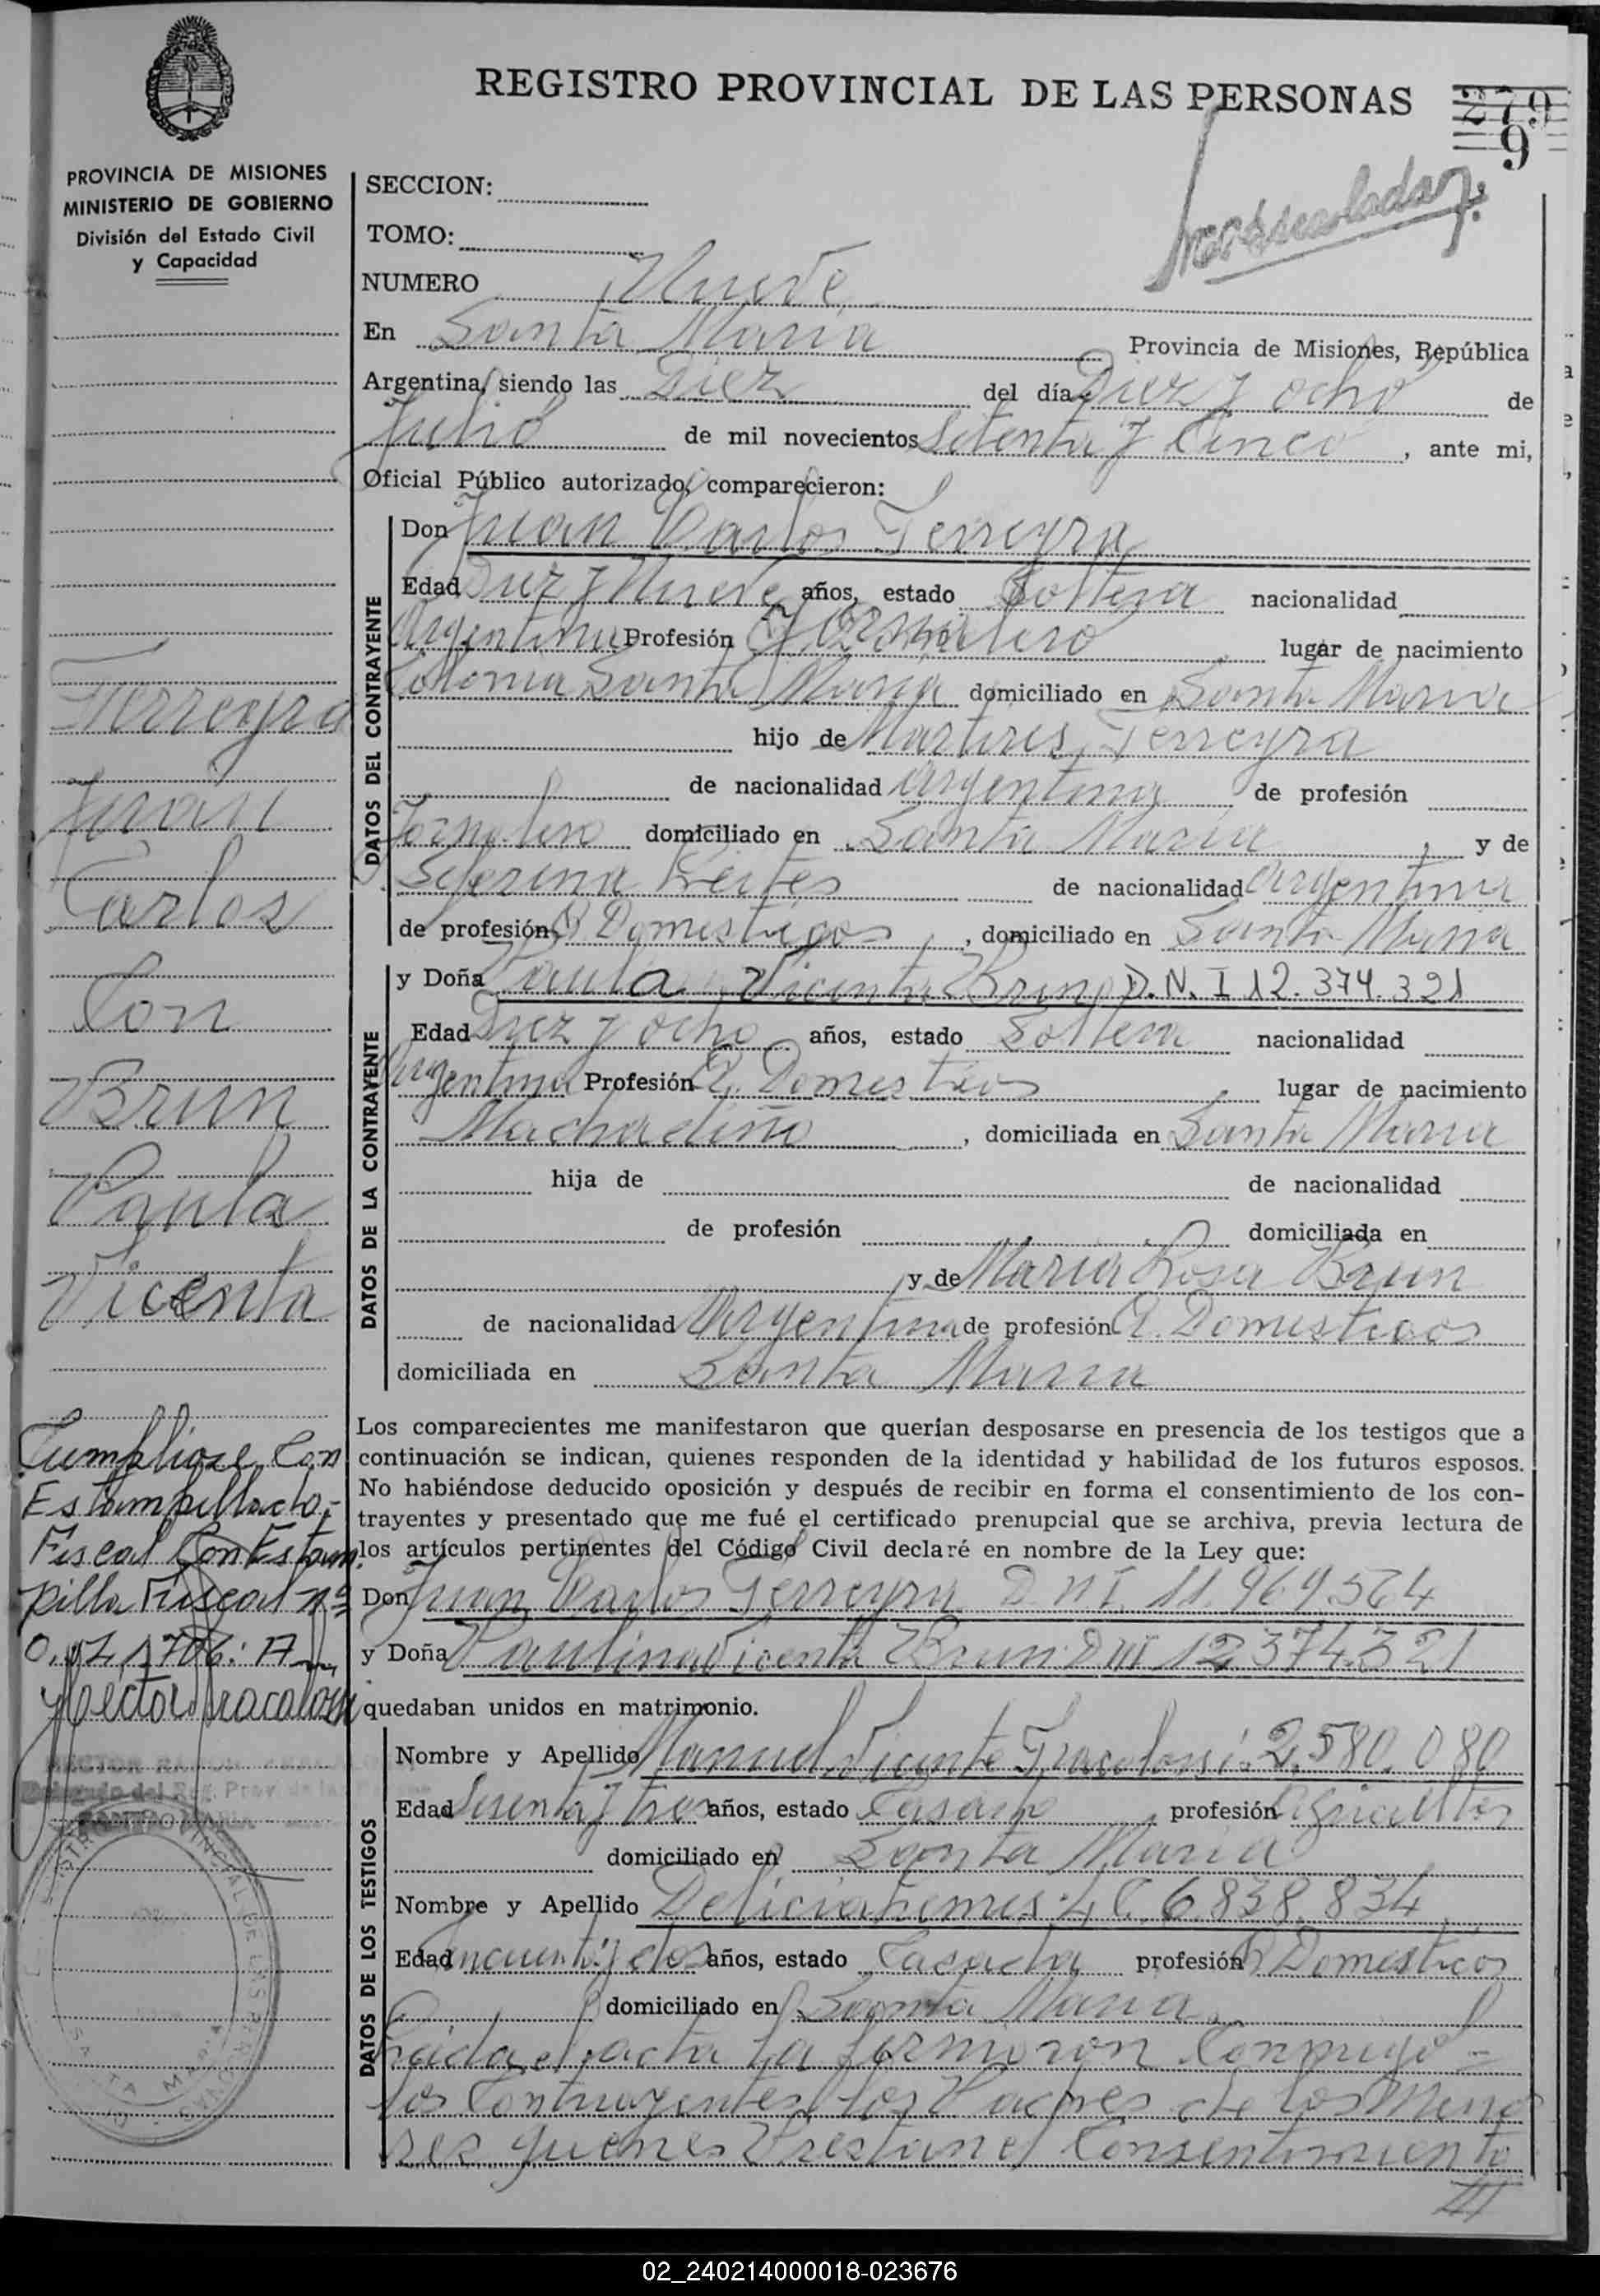 REGISTRO PROVINCIAL DE LAS PERSONAS
279
9
PROVINCIA DE MISIONES
MINISTERIO DE GOBIERNO
División del Estado Civil
y Capacidad
SECCION:
TOMO:
NUMERO Nueve
En Santa Maria Provincia de Misiones, República
Argentina, siendo las Diez del día Diez y ocho de
Julio de mil novecientos Setenta y Cinco, ante mi,
Oficial Público autorizado, comparecieron:
DATOS DEL CONTRAYENTE
Don Juan Carlos Ferreyra
Edad Diez y Nueve años, estado Soltero nacionalidad
Argentina Profesión Jornalero lugar de nacimiento
Colonia Santa Maria domiciliado en Santa Maria
hijo de Martires Ferreyra
de nacionalidad argentina de profesión
Jornalero domiciliado en Santa Maria, y de
Seferina de nacionalidad argentina
de profesión Q. Domesticos, domiciliado en Santa Maria
DATOS DE LA CONTRAYENTE
y Doña Paula Vicenta Brun D.N.I 12.374.321
Edad Diez y ocho años, estado Soltera nacionalidad
Argentina Profesión Q. Domesticos lugar de nacimiento
Machadiño, domiciliada en Santa Maria
hija de de nacionalidad
de profesión domiciliada en
y de Maria Rosa Brun
de nacionalidad Argentina de profesión Q. Domesticos
domiciliada en Santa Maria
Los comparecientes me manifestaron que querían desposarse en presencia de los testigos que a
continuación se indican, quienes responden de la identidad y habilidad de los futuros esposos.
No habiéndose deducido oposición y después de recibir en forma el consentimiento de los con-
trayentes y presentado que me fué el certificado prenupcial que se archiva, previa lectura de
los artículos pertinentes del Código Civil declaré en nombre de la Ley que:
Don Juan Carlos Ferreyra D.N.I. 11.969.564
y Doña Paulina Vicenta Brun DNI 12374.321
quedaban unidos en matrimonio.
DATOS DE LOS TESTIGOS
Nombre y Apellido Manuel Vicente Fracalossi 2.580.080
Edad Sesenta y tres años, estado Casado profesión Agricultor
domiciliado en Santa Maria
Nombre y Apellido Delicia 6.838.834
Edad Cincuenta y dos años, estado Casada profesión Q Domesticos
domiciliado en Santa Maria
Leida el acta La firmaron Conmigo-
los Contrayentes los Padres de los Meno
res quienes Prestan el Consentimiento
///
Ferreyra
Juan
Carlos
Con
Brun
Paula
Vicenta
Cumpliose Con
Estampillado,-
Fiscal Con Estam
pilla Fiscal nº
Hector Fracalossi
SANTA MARIA
02_240214000018-023676